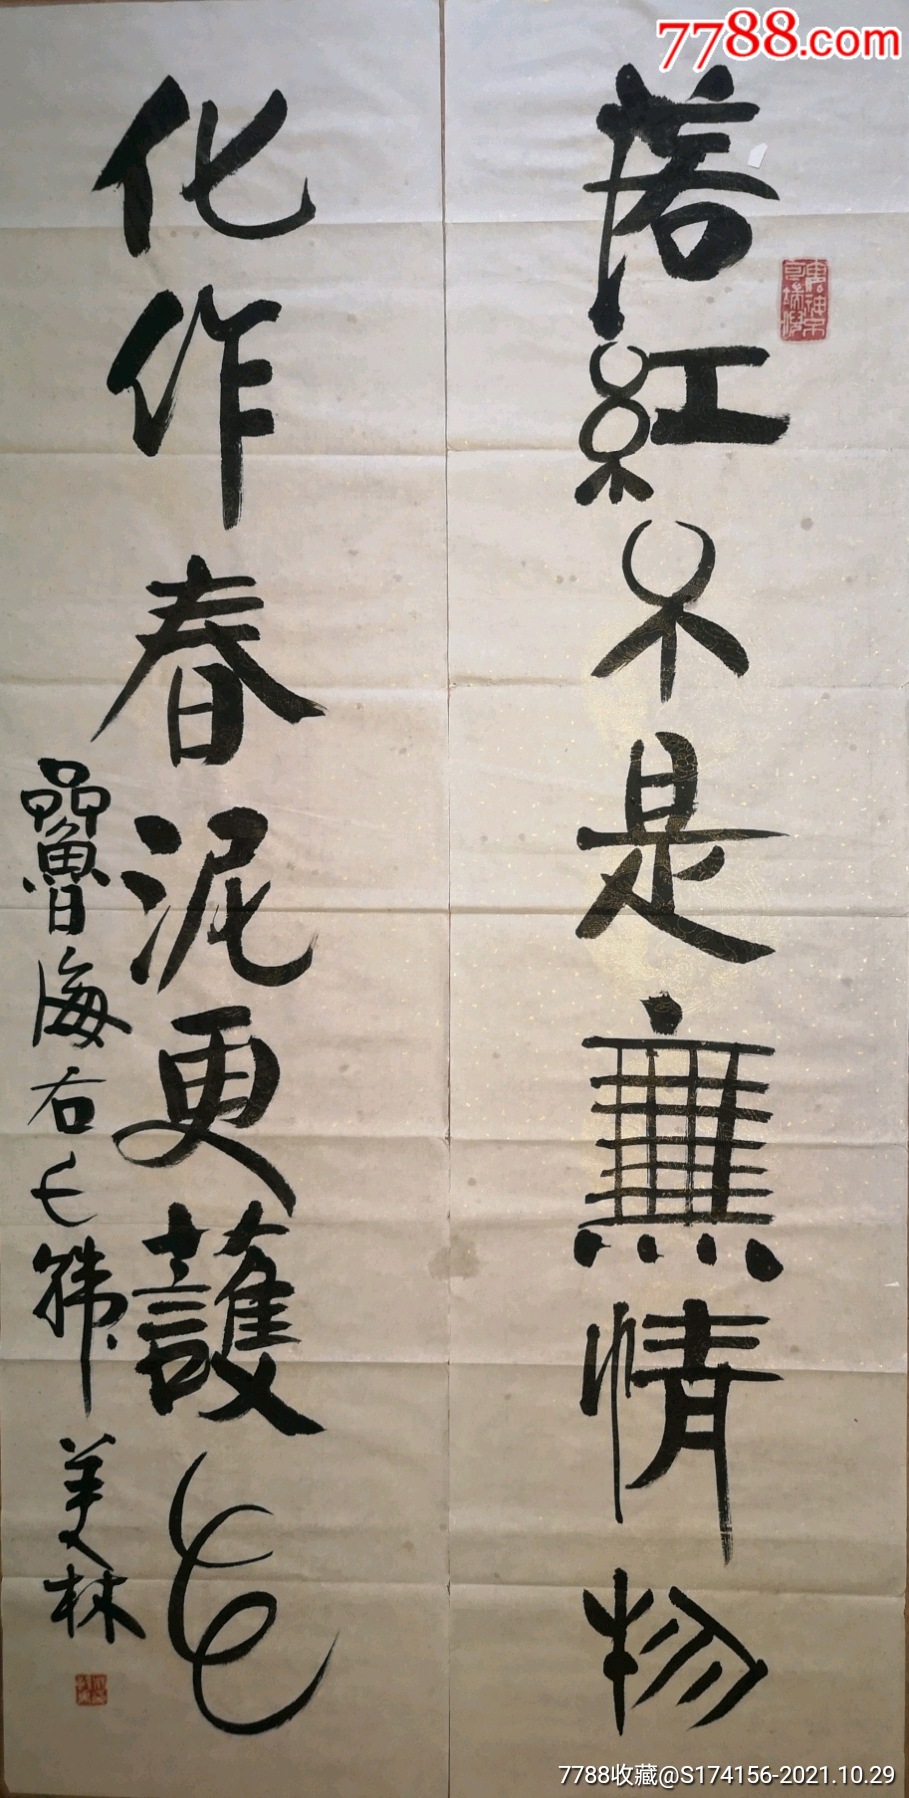 7788.com
落紅不是無情物
化作春泥更護花
魯海右七韩美林
7788收藏@S174156-2021.10.29